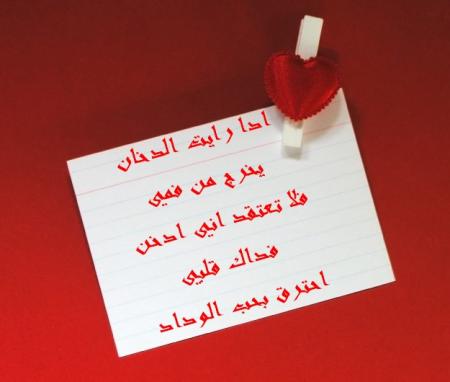 ادا رايت الدخان
يخرج من فمي
فلا تعتقد اني ادخن
فداك قلبي
احترق بحب الوداد